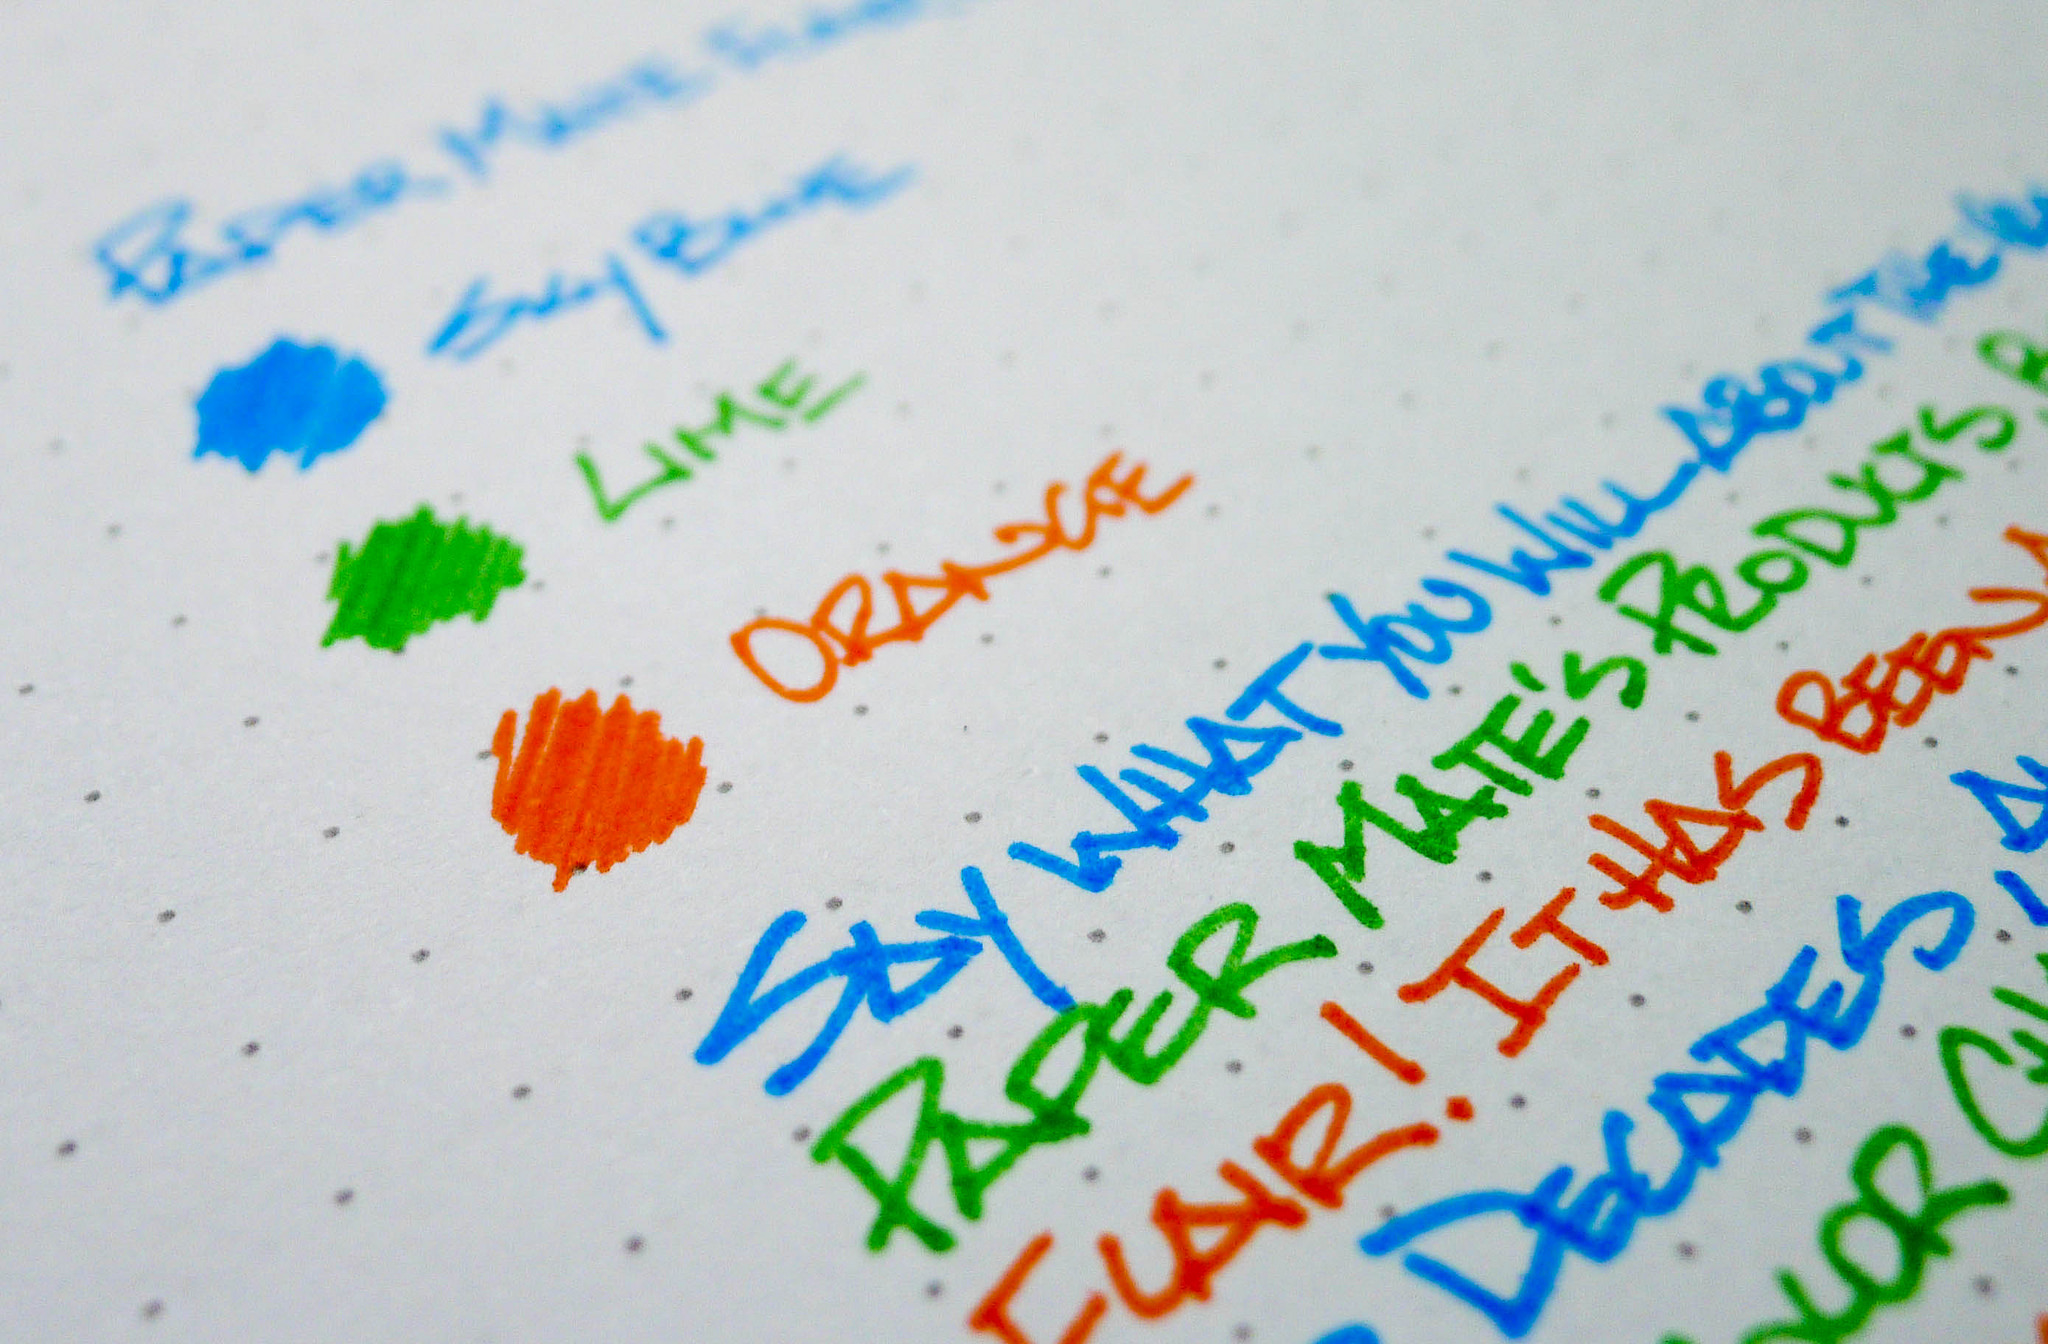 PAPER MATE
SKY BLUE
LIME
ORANGE
SAY WHAT YOU WILL ABOUT THE
PAPER MATE'S PRODUCTS
FLAIR! IT HAS BEEN
DECADES